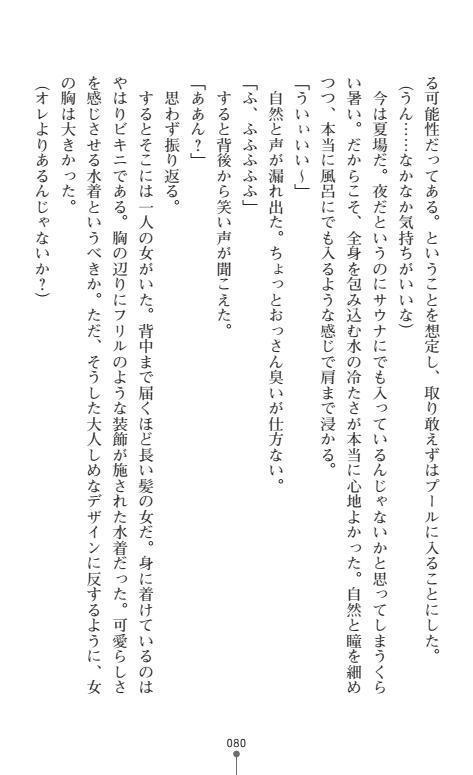 る可能性だってある。ということを想定し、取り敢えずはプールに入ることにした。
(うん……なかなか気持ちがいいな)
今は夏場だ。夜だというのにサウナにでも入っているんじゃないかと思ってしまうくら
い暑い。だからこそ、全身を包み込む水の冷たさが本当に心地よかった。自然と瞳を細め
つつ、本当に風呂にでも入るような感じで肩まで浸かる。
「うぃぃいい〜」
自然と声が漏れ出た。ちょっとおっさん臭いが仕方ない。
「ふ、ふふふふふ」
すると背後から笑い声が聞こえた。
「ああん?」
思わず振り返る。
するとそこには一人の女がいた。背中まで届くほど長い髪の女だ。身に着けているのは
やはりビキニである。胸の辺りにフリルのような装飾が施された水着だった。可愛らしさ
を感じさせる水着というべきか。ただ、そうした大人しめなデザインに反するように、女
の胸は大きかった。
(オレよりあるんじゃないか?)
080